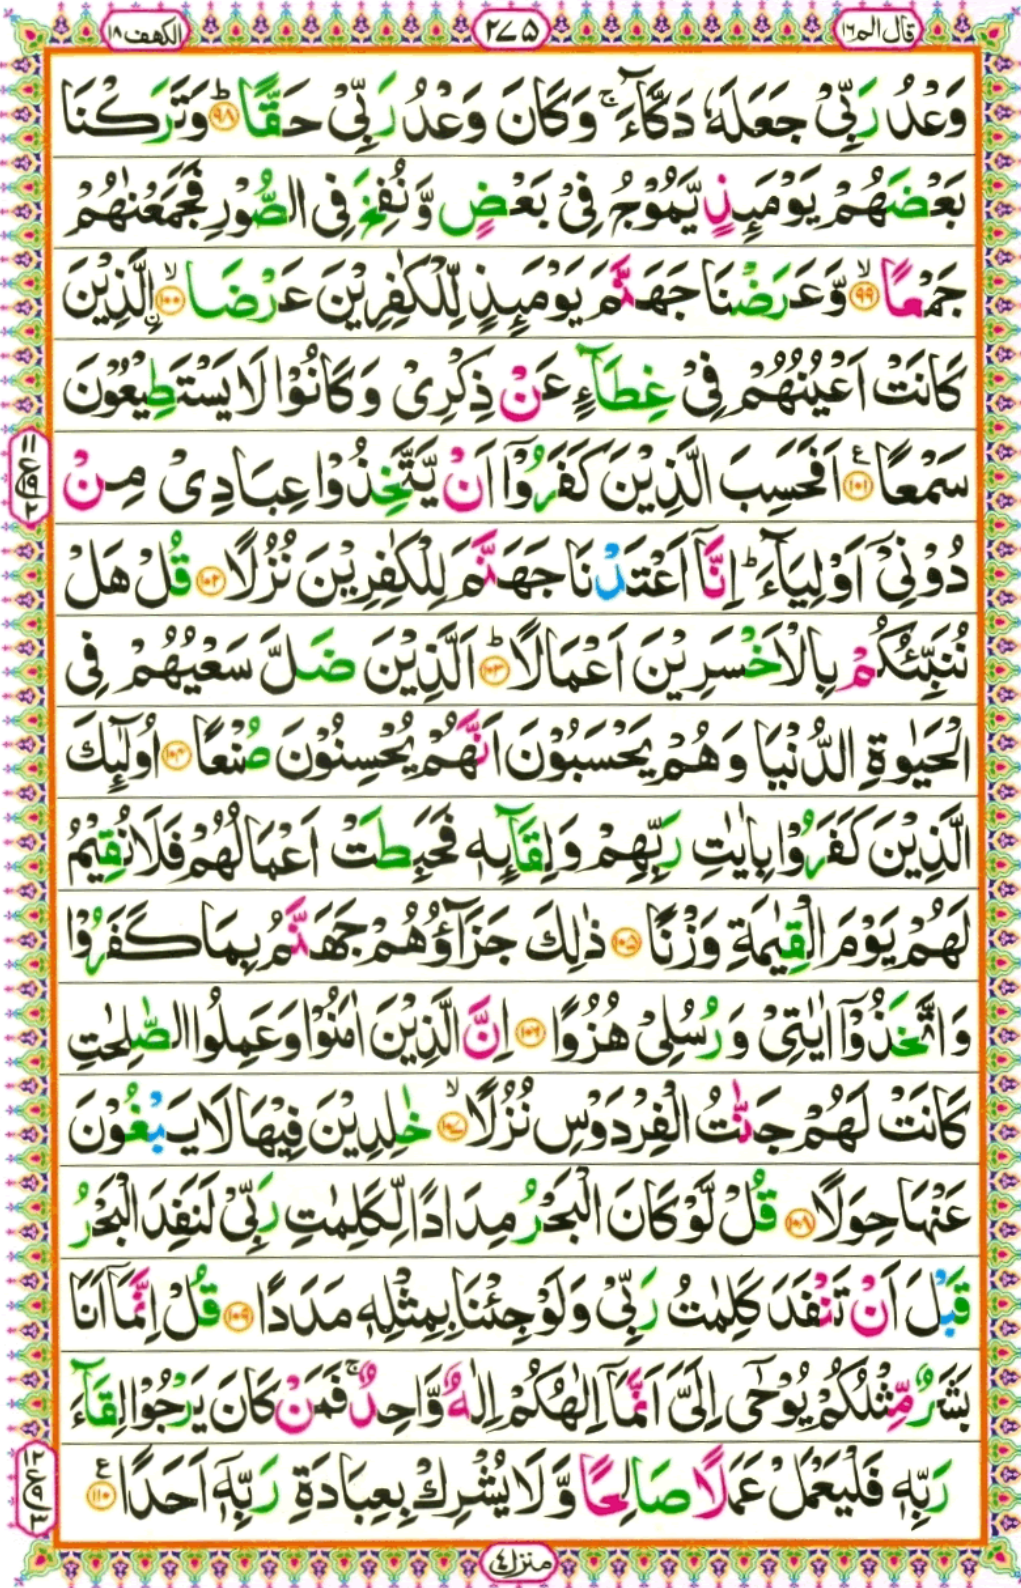 قال الم ١٦
٢٧٥
الكهف ١٨
وَعْدُ رَبِّیْ جَعَلَهٗ دَكَّآءَ ۚ وَكَانَ وَعْدُ رَبِّیْ حَقًّا ؕ﴿۹۸﴾ وَتَرَكْنَا
بَعْضَهُمْ يَوْمَىِٕذٍ يَّمُوْجُ فِیْ بَعْضٍ وَّنُفِخَ فِی الصُّوْرِ فَجَمَعْنٰهُمْ
جَمْعًا ۙ﴿۹۹﴾ وَّعَرَضْنَا جَهَنَّمَ يَوْمَىِٕذٍ لِّلْكٰفِرِيْنَ عَرْضَا ۙ﴿۱۰۰﴾ ِ۟الَّذِيْنَ
كَانَتْ اَعْيُنُهُمْ فِیْ غِطَآءٍ عَنْ ذِكْرِیْ وَكَانُوْا لَا يَسْتَطِيْعُوْنَ
سَمْعًا ﴿۱۰۱﴾ ع اَفَحَسِبَ الَّذِيْنَ كَفَرُوْۤا اَنْ يَّتَّخِذُوْا عِبَادِیْ مِنْ
١١ ع ٩ ٢
دُوْنِیْۤ اَوْلِيَآءَ ؕ اِنَّاۤ اَعْتَدْنَا جَهَنَّمَ لِلْكٰفِرِيْنَ نُزُلًا ﴿۱۰۲﴾ قُلْ هَلْ
نُنَبِّئُكُمْ بِالْاَخْسَرِيْنَ اَعْمَالًا ؕ﴿۱۰۳﴾ اَلَّذِيْنَ ضَلَّ سَعْيُهُمْ فِی
الْحَيٰوةِ الدُّنْيَا وَهُمْ يَحْسَبُوْنَ اَنَّهُمْ يُحْسِنُوْنَ صُنْعًا ﴿۱۰۴﴾ اُولٰٓىِٕكَ
الَّذِيْنَ كَفَرُوْا بِاٰيٰتِ رَبِّهِمْ وَلِقَآىِٕهٖ فَحَبِطَتْ اَعْمَالُهُمْ فَلَا نُقِيْمُ
لَهُمْ يَوْمَ الْقِيٰمَةِ وَزْنًا ﴿۱۰۵﴾ ذٰلِكَ جَزَآؤُهُمْ جَهَنَّمُ بِمَا كَفَرُوْا
وَاتَّخَذُوْۤا اٰيٰتِیْ وَرُسُلِیْ هُزُوًا ﴿۱۰۶﴾ اِنَّ الَّذِيْنَ اٰمَنُوْا وَعَمِلُوا الصّٰلِحٰتِ
كَانَتْ لَهُمْ جَنّٰتُ الْفِرْدَوْسِ نُزُلًا ۙ﴿۱۰۷﴾ خٰلِدِيْنَ فِيْهَا لَا يَبْغُوْنَ
عَنْهَا حِوَلًا ﴿۱۰۸﴾ قُلْ لَّوْ كَانَ الْبَحْرُ مِدَادًا لِّكَلِمٰتِ رَبِّیْ لَنَفِدَ الْبَحْرُ
قَبْلَ اَنْ تَنْفَدَ كَلِمٰتُ رَبِّیْ وَلَوْ جِئْنَا بِمِثْلِهٖ مَدَدًا ﴿۱۰۹﴾ قُلْ اِنَّمَاۤ اَنَا
بَشَرٌ مِّثْلُكُمْ يُوْحٰۤی اِلَیَّ اَنَّمَاۤ اِلٰهُكُمْ اِلٰهٌ وَّاحِدٌ ۚ فَمَنْ كَانَ يَرْجُوْا لِقَآءَ
رَبِّهٖ فَلْيَعْمَلْ عَمَلًا صَالِحًا وَّلَا يُشْرِكْ بِعِبَادَةِ رَبِّهٖۤ اَحَدًا ﴿۱۱۰﴾ ع
١٢ ع ٩ ٣
منزل ٤